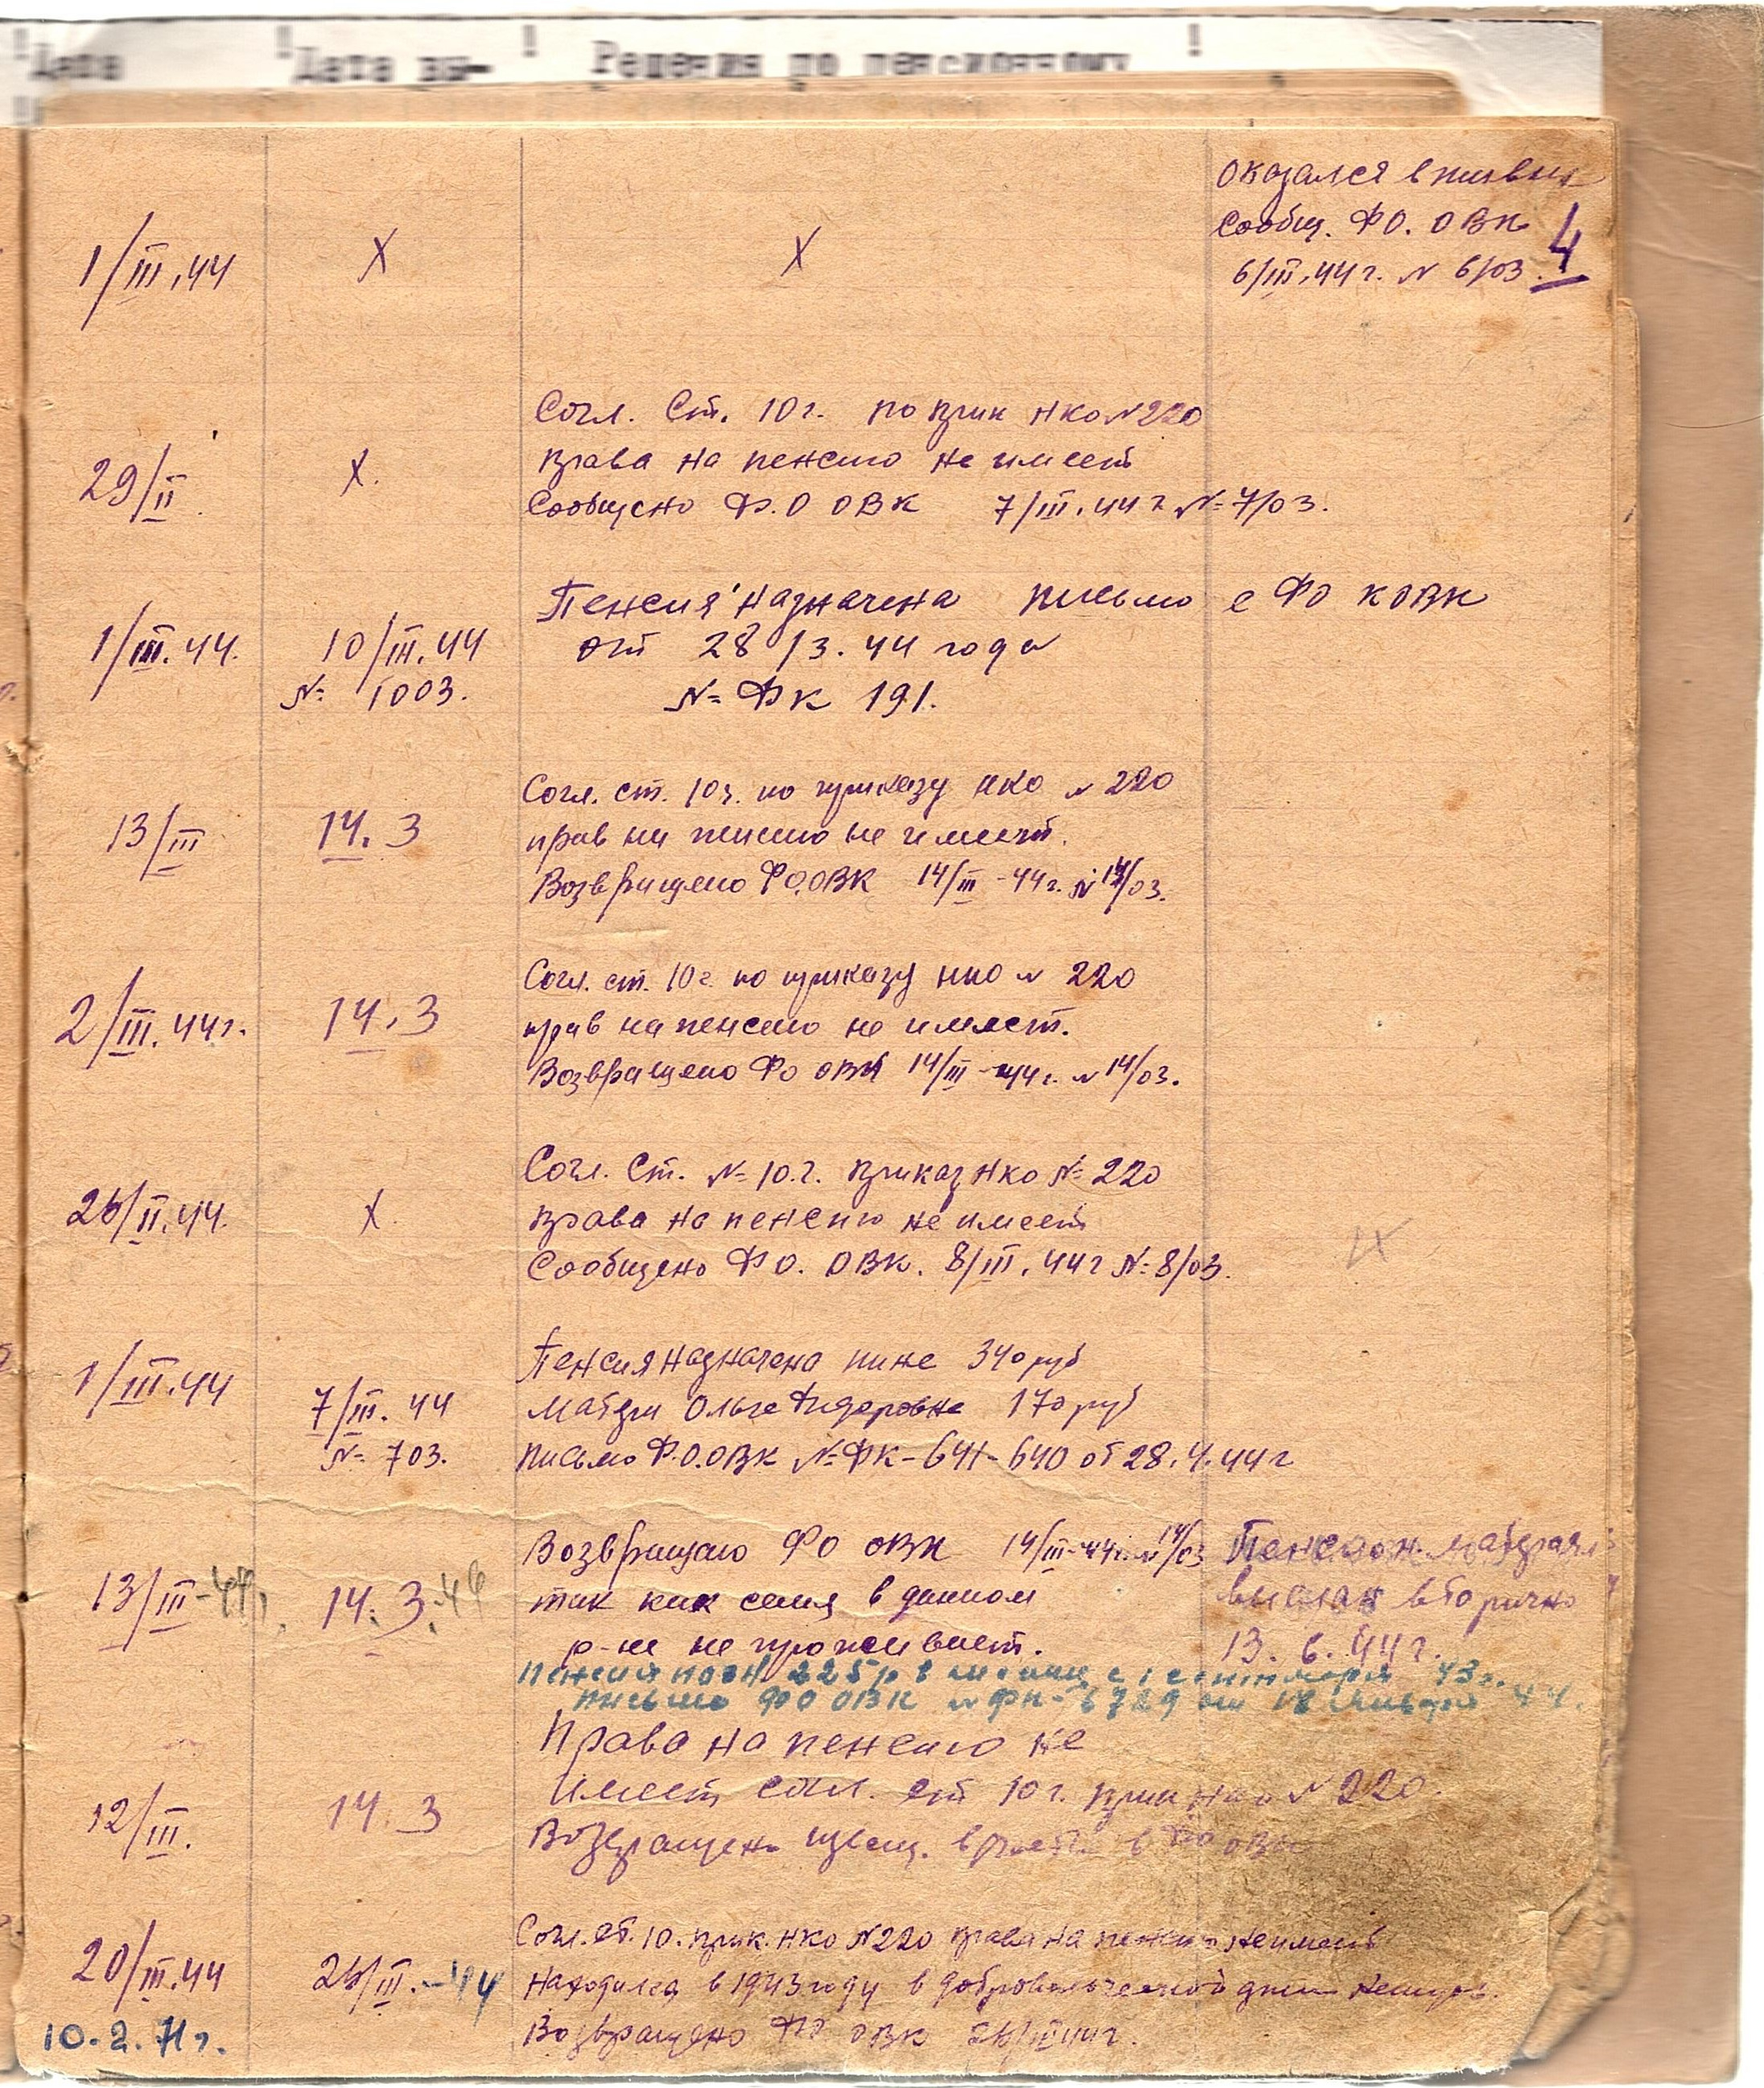 Дата
Дата вы-
Решения по пенсионному
оказался в живых
Сообщ. ФО. ОВК
6/III.44 г. № 6/03.
4
1/III.44
X
X
Согл. Ст. 10 г. по прик НКО № 220
права на пенсию не имеет
Сообщено Ф.О ОВК 7/III.44 г № 7/03.
29/II
X.
Пенсия назначена письмо с ФО КОВК
от 28/3.44 года
№ ФК 191.
1/III.44.
10/III.44
№ 1003.
Согл. ст. 10 г. по приказу НКО № 220
прав на пенсию не имеет.
Возвращено ФО.ОВК 14/III-44 г. № 14/03.
13/III
14.3
Согл. ст. 10 г. по приказу НКО № 220
прав на пенсию не имеет.
Возвращено ФО ОВК 14/III-44 г. № 14/03.
2/III.44г.
14.3
Согл. Ст. № 10.г. приказ НКО № 220
права на пенсию не имеет
Сообщено ФО. ОВК. 8/III.44 г № 8/03.
26/II.44.
X.
Пенсия назначена 340 руб
Матери Ольге Фидоровне 170 руб
письмо Ф.О.ОВК № ФК-641-640 от 28.4.44 г
1/III.44
7/III.44
№ 703.
Возвращаю ФО ОВК 14/III-44 г. № 14/03
так как семя в данном
р-не не проживает.
13/III-44
14.3.44
Пенсион. материал
выслан вторично
13.6.44 г.
Пенсия 225 р в месяц с 1 сентября 43 г.
письмо ФО ОВК № ФК-6729 от 18 44.
Права на пенсию не
имеет согл. ст 10 г. прик НКО № 220.
Возвращено ОВК
12/III.
14.3
Согл. ст. 10. прик. НКО № 220 права на пенсию не имеет
Находился в 1943 году в добровольческой немцев.
Возвращено ФО ОВК 26/III 44 г.
20/III.44
26/III.-44
10.2.71 г.